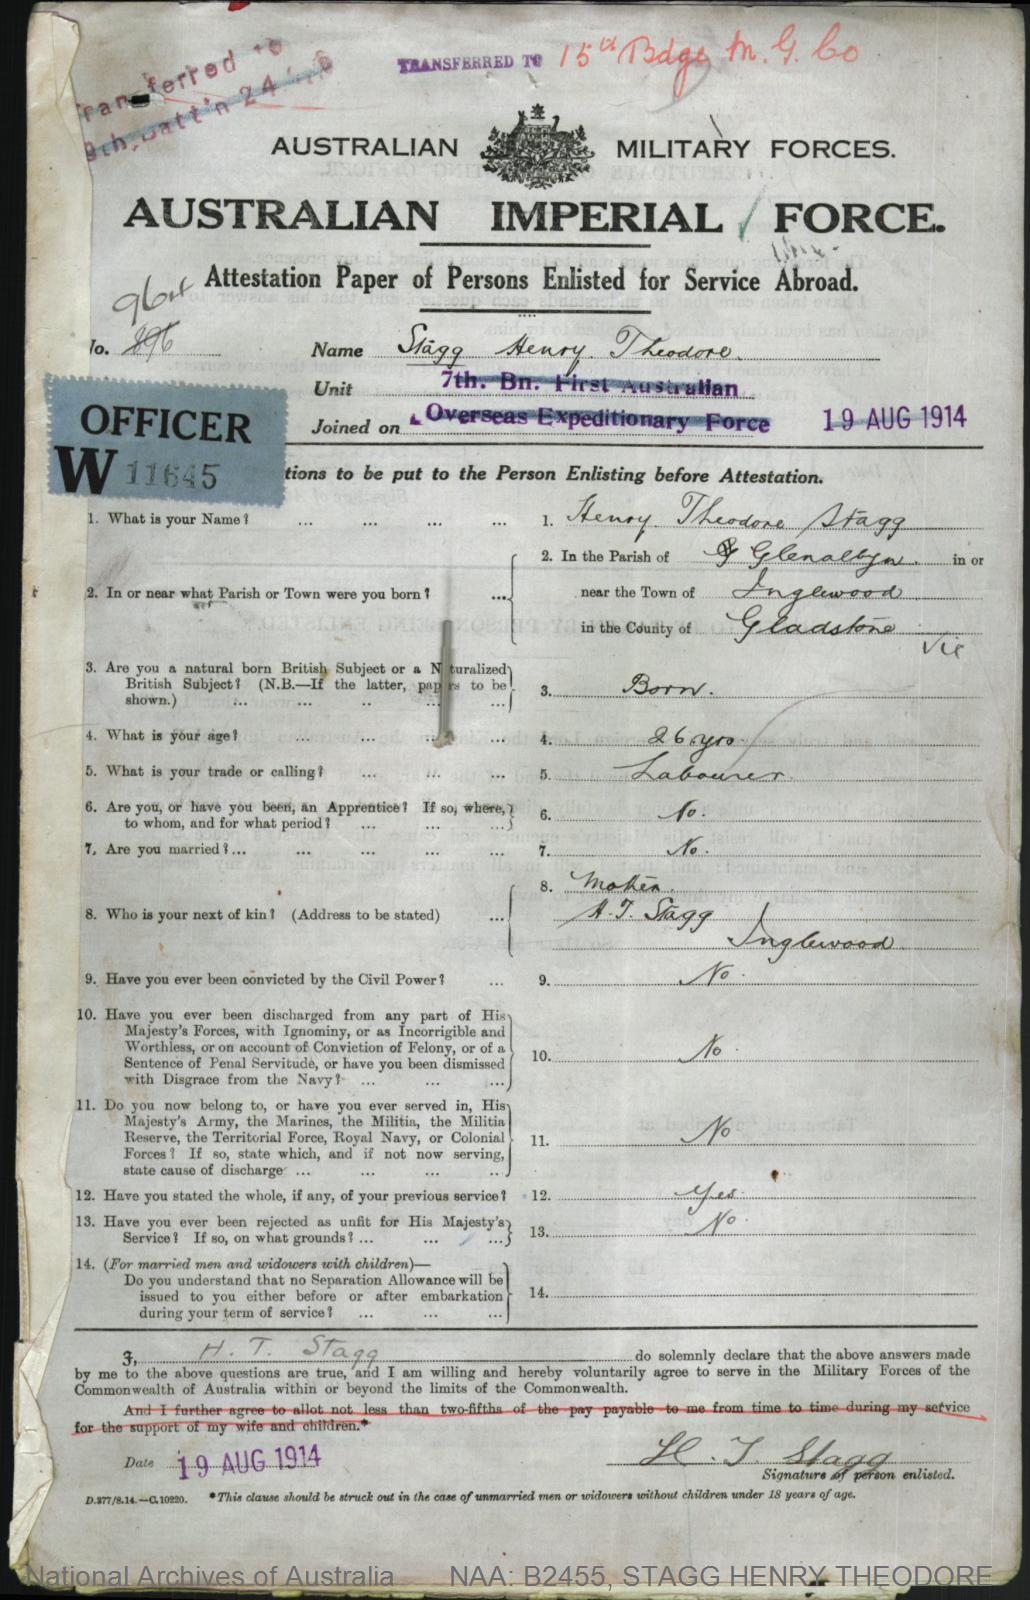 Transferred to
TRANSFERRED TO 15th Bdge M. G. Co
Batt'n 24
AUSTRALIAN MILITARY FORCES.
AUSTRALIAN IMPERIAL FORCE.
Attestation Paper of Persons Enlisted for Service Abroad.
No. 896 Name Stagg Henry Theodore.
Unit 7th. Bn. First Australian
Joined on Overseas Expeditionary Force 19 AUG 1914
OFFICER
W 11645
tions to be put to the Person Enlisting before Attestation.
1. What is your Name? ... ... ... ... 1. Henry Theodore Stagg
2. In or near what Parish or Town were you born? ... 2. In the Parish of Glenalbyn. in or
near the Town of Inglewood
in the County of Gladstone
Vic
3. Are you a natural born British Subject or a Naturalized
British Subject? (N.B.—If the latter, papers to be
shown.) ... ... .. ... ... 3. Born.
4. What is your age? ... ... ... ... 4. 26 yrs
5. What is your trade or calling? ... ... ... ... 5. Labourer.
6. Are you, or have you been, an Apprentice? If so, where,
to whom, and for what period? ... ... ... 6. No.
7. Are you married? ... ... ... ... ... 7. No.
8. Who is your next of kin? (Address to be stated) ... 8. Mother.
H. T. Stagg
Inglewood.
9. Have you ever been convicted by the Civil Power? ... 9. No.
10. Have you ever been discharged from any part of His
Majesty's Forces, with Ignominy, or as Incorrigible and
Worthless, or on account of Conviction of Felony, or of a
Sentence of Penal Servitude, or have you been dismissed
with Disgrace from the Navy? ... ... ... 10. No.
11. Do you now belong to, or have you ever served in, His
Majesty's Army, the Marines, the Militia, the Militia
Reserve, the Territorial Force, Royal Navy, or Colonial
Forces? If so, state which, and if not now serving,
state cause of discharge ... ... ... ... 11. No
12. Have you stated the whole, if any, of your previous service? 12. Yes.
13. Have you ever been rejected as unfit for His Majesty's
Service? If so, on what grounds? ... ... ... 13. No.
14. (For married men and widowers with children)—
Do you understand that no Separation Allowance will be
issued to you either before or after embarkation
during your term of service? ... ... ... 14.
I, H. T. Stagg do solemnly declare that the above answers made
by me to the above questions are true, and I am willing and hereby voluntarily agree to serve in the Military Forces of the
Commonwealth of Australia within or beyond the limits of the Commonwealth.
And I further agree to allot not less than two-fifths of the pay payable to me from time to time during my service
for the support of my wife and children.*
Date 19 AUG 1914 H. T. Stagg
Signature of person enlisted.
D.377/8.14.—C.10220. *This clause should be struck out in the case of unmarried men or widowers without children under 18 years of age.
National Archives of Australia NAA: B2455, STAGG HENRY THEODORE